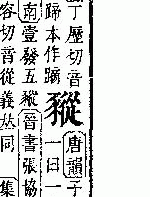 丁歷切音
本作蹢
豵
唐韻子
一曰一
南壹發五豵晉書張協
容切音從義𠀤同 集